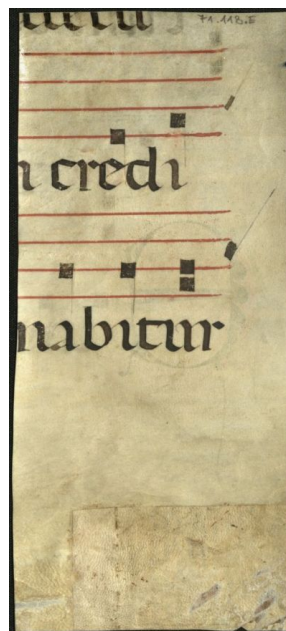 71.113.E
n credi
nabitur